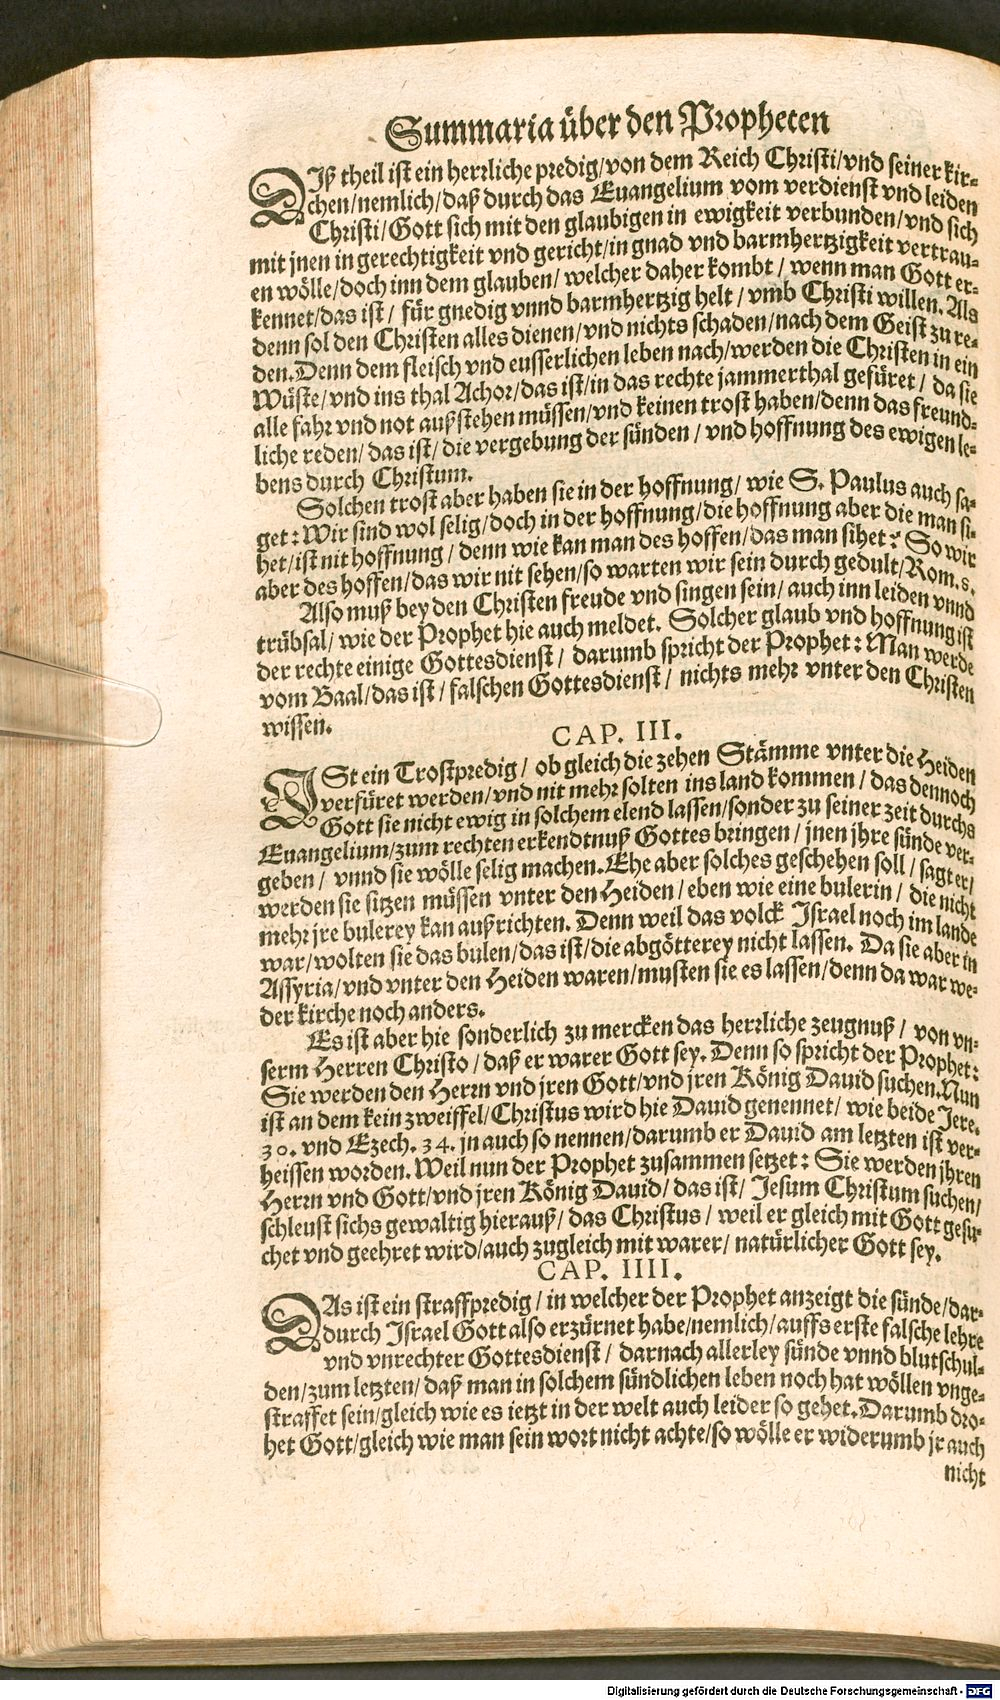 Summaria über den Propheten
DIß theil ist ein herrliche predig/von dem Reich Christi/vnd seiner kir-
chen/nemlich/daß durch das Euangelium vom verdienst vnd leiden
Christi/Gott sich mit den glaubigen in ewigkeit verbunden/vnd sich
mit jnen in gerechtigkeit vnd gericht/in gnad vnd barmhertzigkeit vertrau-
en wölle/doch inn dem glauben/ welcher daher kombt / wenn man Gott er-
kennet/das ist / für gnedig vnnd barmhertzig helt / vmb Christi willen. Als
denn sol den Christen alles dienen/vnd nichts schaden/nach dem Geist zu re-
den. Denn dem fleisch vnd eusserlichen leben nach/werden die Christen in ein
Wüste/vnd ins thal Achor/das ist/in das rechte jammerthal gefüret / da sie
alle fahr vnd not außstehen müssen/vnd keinen trost haben/denn das freund-
liche reden/das ist/ die vergebung der sünden / vnd hoffnung des ewigen le-
bens durch Christum.
Solchen trost aber haben sie in der hoffnung/ wie S. Paulus auch sa-
get: Wir sind wol selig/doch in der hoffnung/die hoffnung aber die man si-
het/ist nit hoffnung / denn wie kan man des hoffen/das man sihet? So wir
aber des hoffen/das wir nit sehen/so warten wir sein durch gedult/Rom. 8.
Also muß bey den Christen freude vnd singen sein/ auch inn leiden vnnd
trübsal/ wie der Prophet hie auch meldet. Solcher glaub vnd hoffnung ist
der rechte einige Gottesdienst / darumb spricht der Prophet: Man werde
vom Baal/das ist / falschen Gottesdienst/ nichts mehr vnter den Christen
wissen.
CAP. III.
ISt ein Trostpredig / ob gleich die zehen Stämme vnter die Heiden
verfüret werden/vnd nit mehr solten ins land kommen / das dennoch
Gott sie nicht ewig in solchem elend lassen/sonder zu seiner zeit durchs
Euangelium/zum rechten erkendtnuß Gottes bringen / jnen jhre sünde ver-
geben / vnnd sie wölle selig machen. Ehe aber solches geschehen soll / sagt er/
werden sie sitzen müssen vnter den Heiden / eben wie eine bulerin / die nicht
mehr jre bulerey kan außrichten. Denn weil das volck Israel noch im lande
war/wolten sie das bulen/das ist/die abgötterey nicht lassen. Da sie aber in
Assyria/vnd vnter den Heiden waren/musten sie es lassen/denn da war we-
der kirche noch anders.
Es ist aber hie sonderlich zu mercken das herrliche zeugnuß / von vn-
serm Herren Christo / daß er warer Gott sey. Denn so spricht der Prophet:
Sie werden den Herrn vnd jren Gott/vnd jren König Dauid suchen. Nun
ist an dem kein zweiffel/Christus wird hie Dauid genennet/ wie beide Jere.
30. vnd Ezech. 34. jn auch so nennen/darumb er Dauid am letzten ist ver-
heissen worden. Weil nun der Prophet zusammen setzet: Sie werden jhren
Herrn vnd Gott/vnd jren König Dauid/ das ist/ Jesum Christum suchen/
schleust sichs gewaltig hierauß/ das Christus / weil er gleich mit Gott gesu-
chet vnd geehret wird/auch zugleich mit warer/ natürlicher Gott sey.
CAP. IIII.
DAs ist ein straffpredig / in welcher der Prophet anzeigt die sünde/dar-
durch Israel Gott also erzürnet habe/nemlich/auffs erste falsche lehre
vnd vnrechter Gottesdienst / darnach allerley sünde vnnd blutschul-
den/zum letzten/ daß man in solchem sündlichen leben noch hat wöllen vnge-
straffet sein/gleich wie es ietzt in der welt auch leider so gehet. Darumb dro-
het Gott/gleich wie man sein wort nicht achte/so wölle er widerumb jr auch
nicht
Digitalisierung gefördert durch die Deutsche Forschungsgemeinschaft - DFG